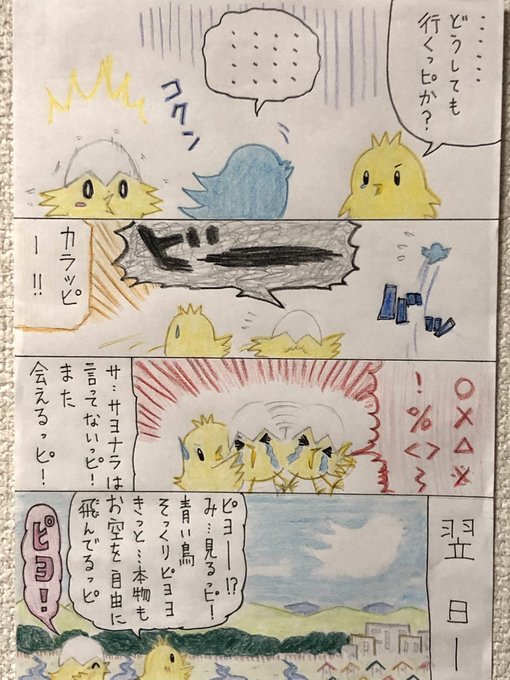 ……
どうしても
行くっピか?
、、、、
、、、、
、、、、
コクン
バサッ
ビーーー
カラッピ
ー!!
○×△※
!%<>〜
サ…サヨナラは
言ってないっピ!
また
会えるっピ!
翌日ー
ピヨー!?
み…見るっピ!
青い鳥
そっくりピヨヨ
きっと…本物も
お空を自由に
飛んでるっピ
ピヨ!